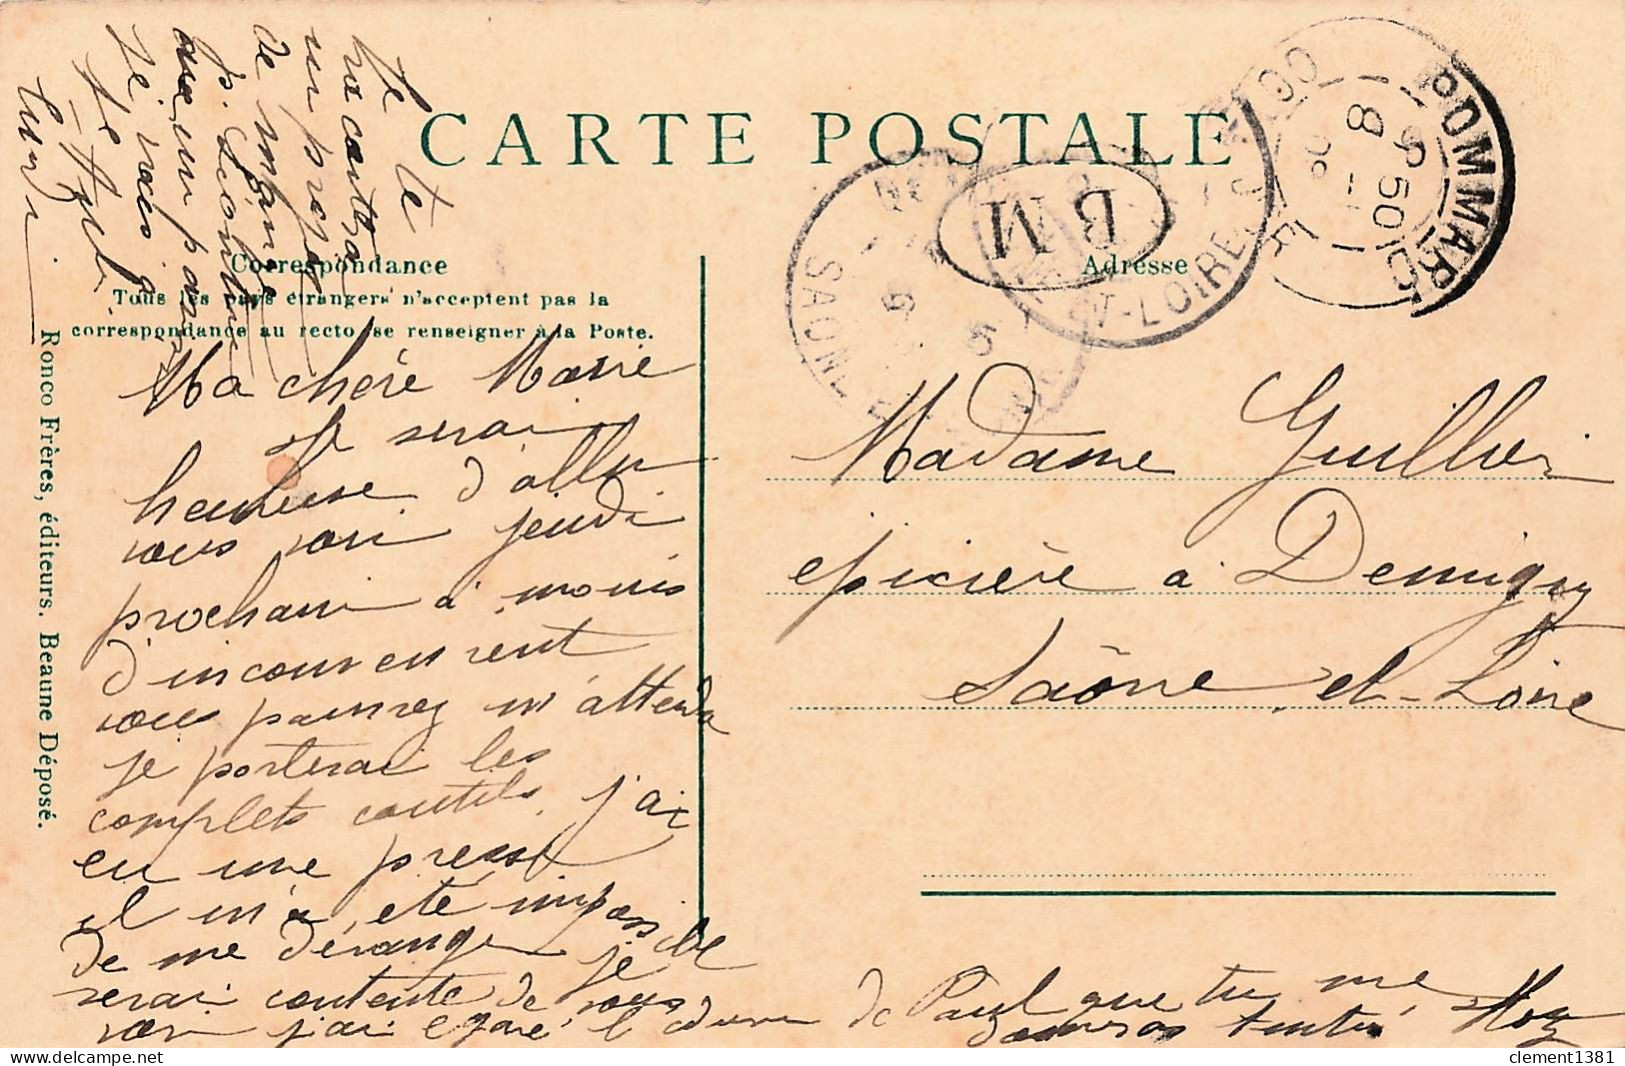 CARTE POSTALE
Correspondance
Tous les pays étrangers n'acceptent pas la
correspondance au recto se renseigner à la Poste.
Adresse
BM
POMMARD
COTE-D'OR
8
50
SAONE-ET-LOIRE
Madame Guillier
épicière à Demigny
Saône-et-Loire
Ma chère Marie
Je serai
heureuse d'aller
vous voir jeudi
prochain à moins
d'inconvenient
vous pouvez m'attendre
je porterai les
complets coutils, j'ai
eu une presse
il m'a été impossible
de me déranger je
serai contente de vous
voir j'ai égaré l
de Paul que tu me
donneras
Je te
racontrai
un
de
je
Ronco Frères, éditeurs. Beaune Déposé.
clement1381